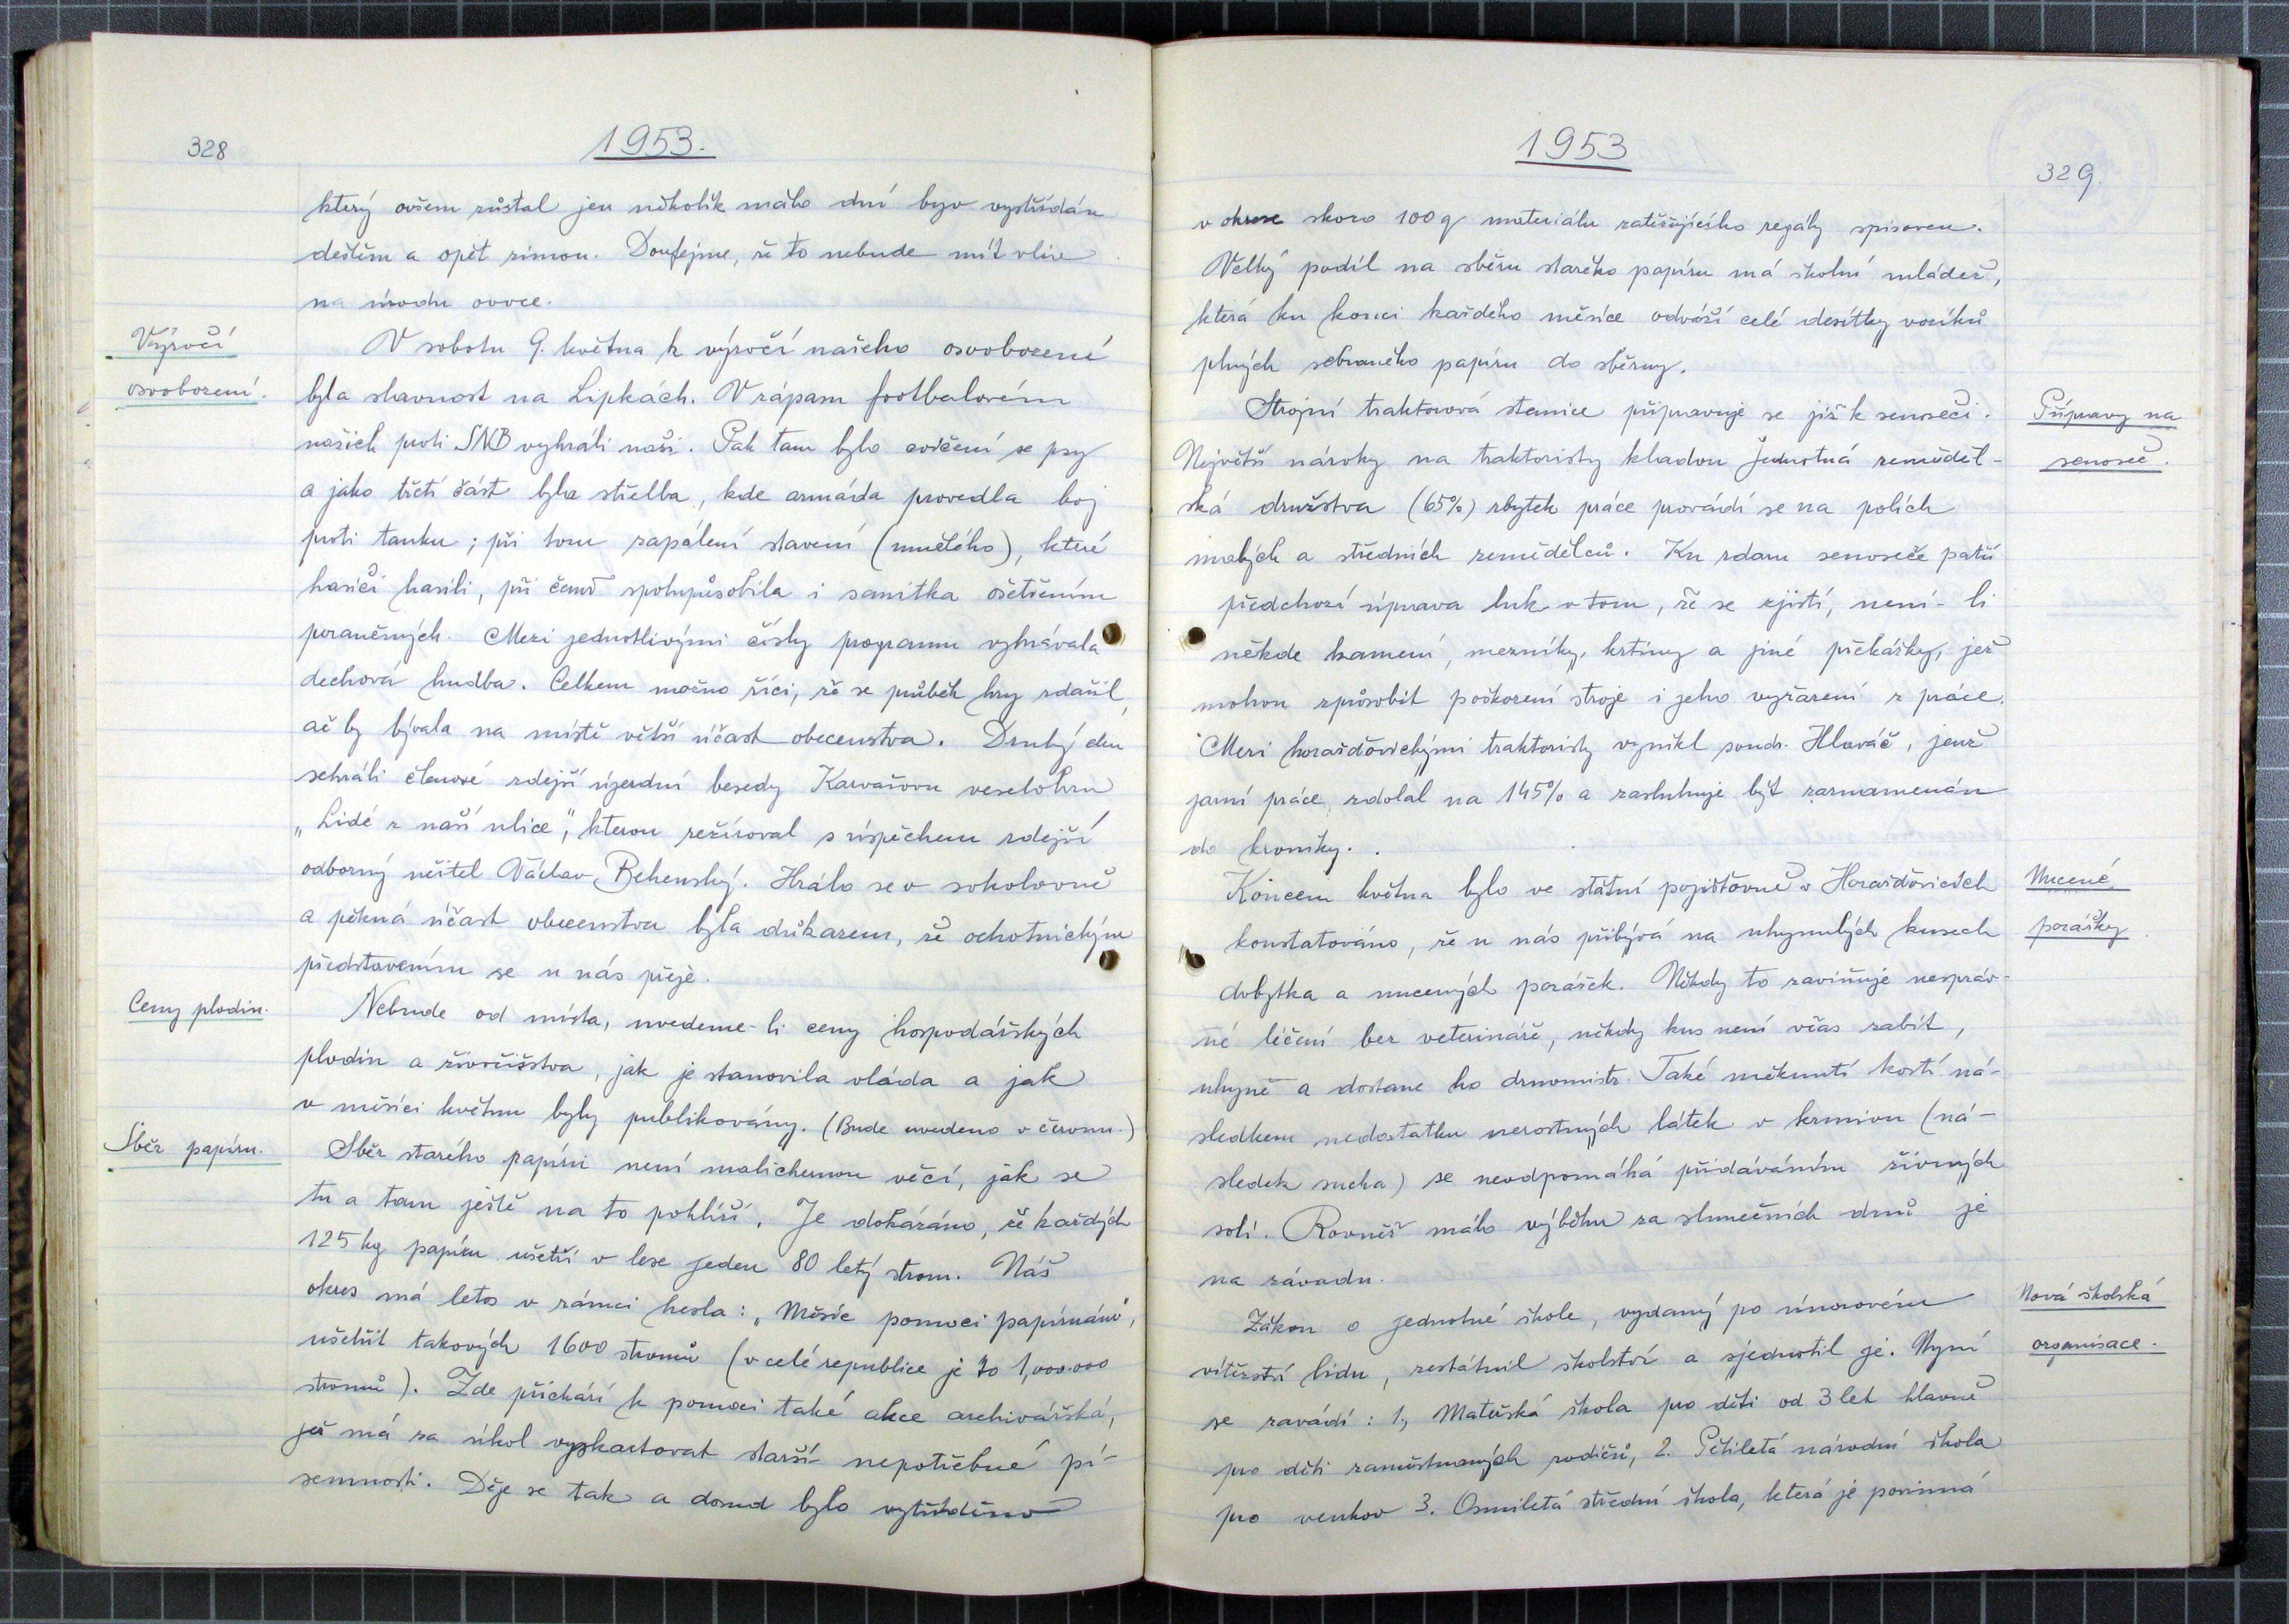 328
1953.
který ovšem zůstal jen několik málo dní byv vystřídán
deštěm a opět zimou. Doufejme, že to nebude mít vliv
na úrodu ovoce.
Výročí
osvobození.
V sobotu 9. května k výročí našeho osvobození
byla slavnost na Lipkách. V zápasu footbalovém
našich proti SNB vyhráli naši. Pak tam bylo cvičení se psy
a jako třetí část byla střelba, kde armáda provedla boj
proti tanku; při tom zapálení stavení (umělého), které
hasiči hasili, při čemž spolupůsobila i sanitka ošetřením
poraněných. Mezi jednotlivými čísly programu vyhrávala
dechová hudba. Celkem možno říci, že se průběh hry zdařil,
ač by bývala na místě větší účast obecenstva. Druhý den
sehráli členové zdejší újezdní besedy Karvašovu veselohru
„Lidé z naší ulice“, kterou režíroval s úspěchem zdejší
odborný učitel Václav Behenský. Hrálo se v sokolovně
a pěkná účast obecenstva byla důkazem, že ochotnickým
představením se u nás přeje.
Ceny plodin.
Nebude od místa, uvedeme-li ceny hospodářských
plodin a živočišstva, jak je stanovila vláda a jak
v měsíci květnu byly publikovány. (Bude uvedeno v červnu.)
Sběr papíru.
Sběr starého papíru není malichernou věcí, jak se
tu a tam ještě na to pohlíží. Je dokázáno, že každých
125 kg papíru ušetří v lese jeden 80 letý strom. Náš
okres má letos v rámci hesla: „Měsíc pomoci papírnám“,
ušetřit takových 1600 stromů (v celé republice je to 1,000.000
stromů). Zde přichází k pomoci také akce archivářská,
jež má za úkol vyskartovat starší nepotřebné pí-
semnosti. Děje se tak a dosud bylo vytříděno
1953
329.
v okrese skoro 100 q materiálu zatěžujícího regály spisoven.
Velký podíl na sběru starého papíru má školní mládež,
která ku konci každého měsíce odváží celé desítky vozíků
plných sebraného papíru do sběrny.
Přípravy na
senoseč.
Strojní traktorová stanice připravuje se již k senoseči.
Největší nároky na traktoristy kladou Jednotná zeměděl-
ská družstva (65%) zbytek práce provádí se na polích
malých a středních zemědělců. Ku zdaru senoseče patří
předchozí úprava luk v tom, že se zjistí, není-li
někde kamení, mezníky, krtiny a jiné překážky, jež
mohou způsobit poškození stroje i jeho vyřazení z práce.
Mezi horažďovickými traktoristy vynikl soudr. Hlaváč, jenž
jarní práce zdolal na 145% a zasluhuje být zaznamenán
do kroniky.
Nucené
porážky.
Koncem května bylo ve státní pojišťovně v Horažďovicích
konstatováno, že u nás přibývá na uhynulých kusech
dobytka a nucených porážek. Někdy to zaviňuje nespráv-
né léčení bez veterináře, někdy kus není včas zabit,
uhyne a dostane ho drnomistr. Také měknutí kostí ná-
sledkem nedostatku nerostných látek v krmivu (ná-
sledek sucha) se neodpomáhá přidáváním živných
solí. Rovněž málo výběhu za slunečních dnů je
na závadu.
Nová školská
organisace.
Zákon o jednotné škole, vydaný po únorovém
vítězství lidu, zestátnil školství a sjednotil je. Nyní
se zavádí: 1., Mateřská škola pro děti od 3 let hlavně
pro děti zaměstnaných rodičů, 2. Pětiletá národní škola
pro venkov 3. Osmiletá střední škola, která je povinná